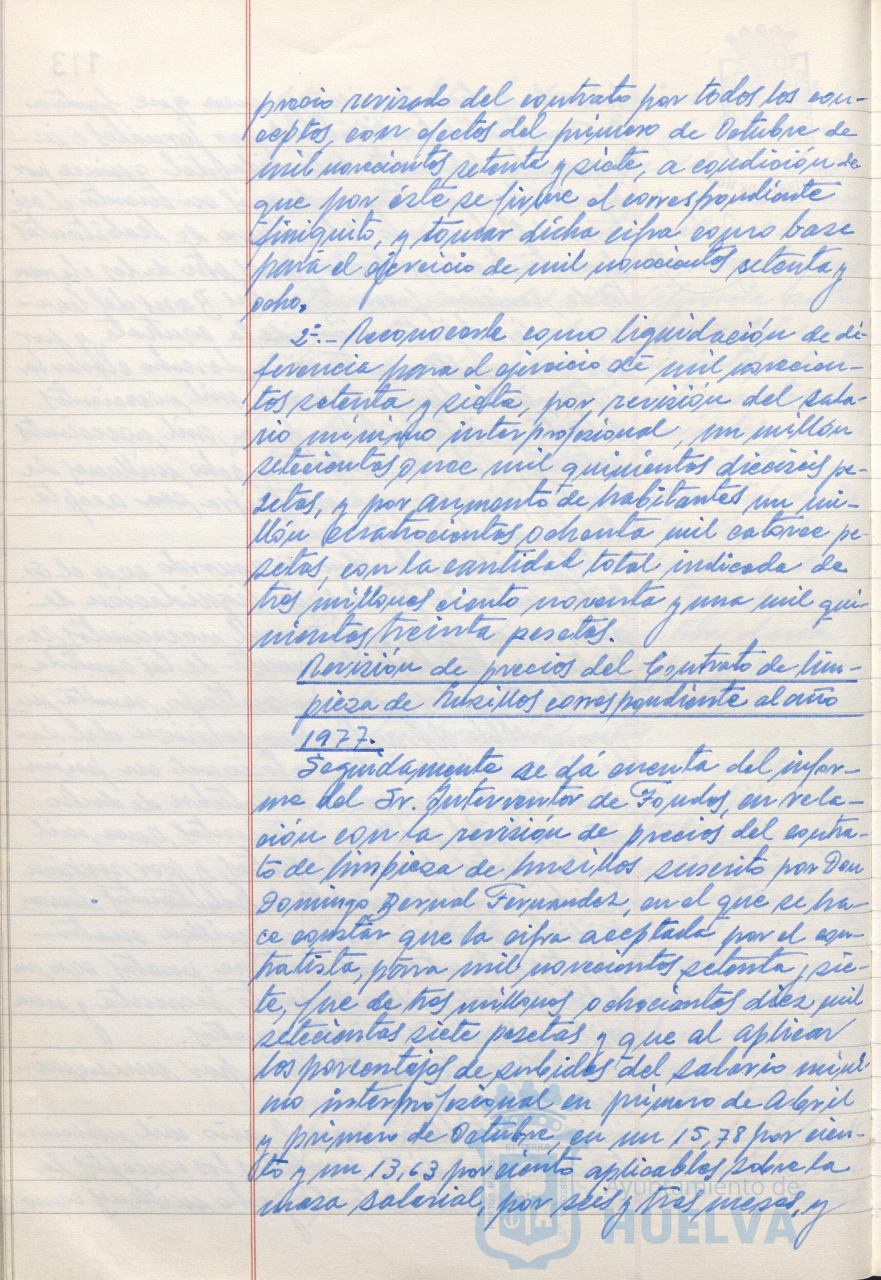 precio revisado del contrato por todos los con-
ceptos, con efectos del primero de Octubre de
mil novecientos setenta y siete, a condición de
que por éste se firme el correspondiente
finiquito, y tomar dicha cifra como base
para el ejercicio de mil novecientos setenta y
ocho.
2º.- Reconocerle como liquidación de di-
ferencia para el ejercicio de mil novecien-
tos setenta y siete, por revisión del sala-
rio mínimo interprofesional, un millón
setecientas once mil quinientas dieciseis pe-
setas, y por aumento de habitantes un mi-
llón cuatrocientas ochenta mil catorce pe-
setas, con la cantidad total indicada de
tres millones ciento noventa y una mil qui-
nientas treinta pesetas.
Revisión de precios del Contrato de lim-
pieza de husillos correspondiente al año
1977.
Seguidamente se dá cuenta del infor-
me del Sr. Interventor de Fondos, en rela-
ción con la revisión de precios del contra-
to de limpieza de husillos suscrito por Don
Domingo Bernal Fernandez, en el que se ha-
ce constar que la cifra aceptada por el con-
tratista, para mil novecientos setenta y sie-
te, fue de tres millones ochocientas diez mil
setecientas siete pesetas y que al aplicar
los porcentajes de subidas del salario míni-
mo interprofesional en primero de Abril
y primero de Octubre, en un 15,78 por cien-
to y un 13,63 por ciento aplicables sobre la
masa salarial, por seis y tres meses, y
Ayuntamiento de
HUELVA
113